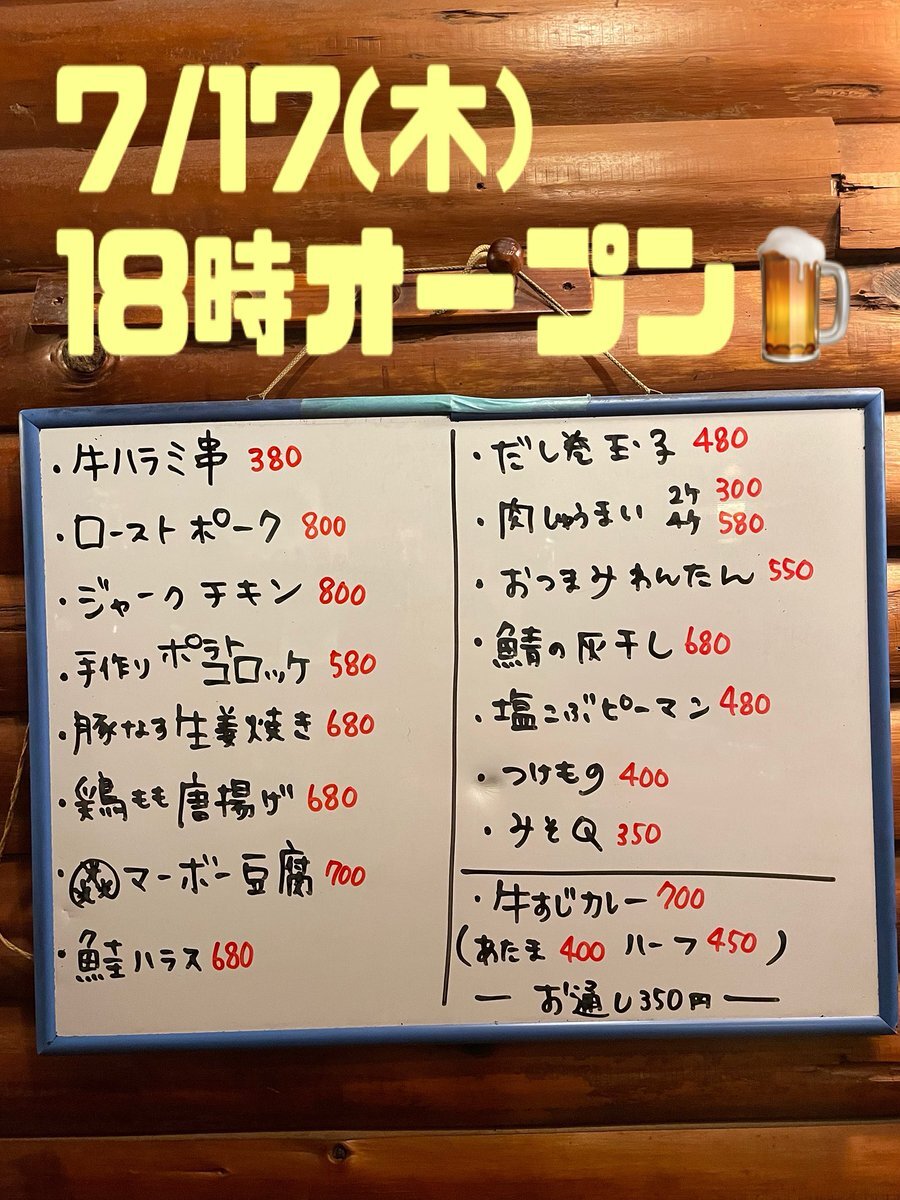 7/17(木)
18時オープン🍺
・牛ハラミ串 380
・ローストポーク 800
・ジャークチキン 800
・手作りポテトコロッケ 580
・豚なす生姜焼き 680
・鶏もも唐揚げ 680
・マーボー豆腐 700
・鮭ハラス 680
・だし巻玉子 480
・肉しゅうまい 2ケ 300
4ケ 580
・おつまみわんたん 550
・鯖の灰干し 680
・塩こぶピーマン 480
・つけもの 400
・みそQ 350
・牛すじカレー 700
(あたま 400 ハーフ 450)
ー お通し350円 ー